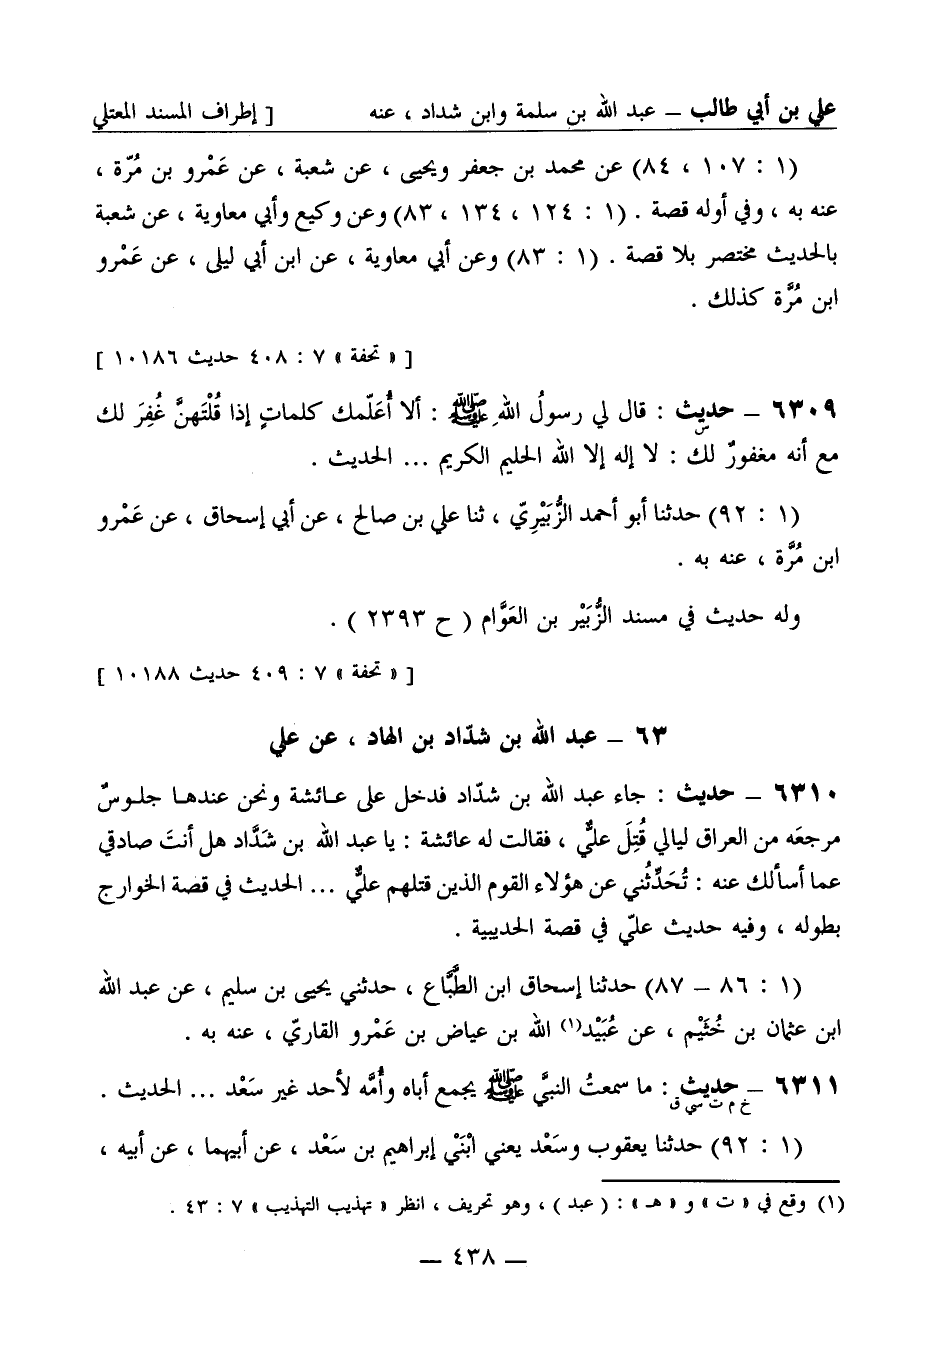 علي بن أبي طالب – عبد الله بن سلمة وابن شداد ، عنه [ إطراف المسند المعتلي
(١ : ١٠٧ ، ٨٤) عن محمد بن جعفر ويحيى ، عن شعبة ، عن عَمْرو بن مُرّة ،
عنه به ، وفي أوله قصة . (١ : ١٢٤ ، ١٣٤ ، ٨٣) وعن وكيع وأبي معاوية ، عن شعبة
بالحديث مختصر بلا قصة . (١ : ٨٣) وعن أبي معاوية ، عن ابن أبي ليلى ، عن عَمْرو
ابن مُرَّة كذلك .
[ « تحفة » ٧ : ٤٠٨ حديث ١٠١٨٦ ]
٦٣٠٩ – حديث : قال لي رسولُ اللهِ ﷺ : ألا أُعَلّمك كلماتٍ إذا قُلْتَهنَّ غُفِرَ لك
س
مع أنه مغفورٌ لك : لا إله إلا الله الحليم الكريم ... الحديث .
(١ : ٩٢) حدثنا أبو أحمد الزُّبَيْرِيّ ، ثنا علي بن صالح ، عن أبي إسحاق ، عن عَمْرو
ابن مُرَّة ، عنه به .
وله حديث في مسند الزُّبَيْر بن العَوَّام ( ح ٢٣٩٣ ) .
[ « تحفة » ٧ : ٤٠٩ حديث ١٠١٨٨ ]
٦٣ – عبد الله بن شدّاد بن الهاد ، عن علي
٦٣١٠ – حديث : جاء عبد الله بن شدّاد فدخل على عـائشة ونحن عندهـا جلـوسٌ
مرجعَه من العراق ليالي قُتِلَ عليٌّ ، فقالت له عائشة : يا عبد الله بن شَدَّاد هل أنتَ صادقي
عما أسألك عنه : تُحَدِّثُني عن هؤلاء القوم الذين قتلهم عليٌّ ... الحديث في قصة الخوارج
بطوله ، وفيه حديث عليّ في قصة الحديبية .
(١ : ٨٦ – ٨٧) حدثنا إسحاق ابن الطَّبَّاع ، حدثني يحيى بن سليم ، عن عبد الله
ابن عثمان بن خُثَيْم ، عن عُبَيْد(١) الله بن عياض بن عَمْرو القاريّ ، عنه به .
٦٣١١ – حديث : ما سمعتُ النبيَّ ﷺ يجمع أباه وأُمَّه لأحد غير سَعْد ... الحديث .
خ م ت سي ق
(١ : ٩٢) حدثنا يعقوب وسَعْد يعني ابْنَيْ إبراهيم بن سَعْد ، عن أبيهما ، عن أبيه ،
(١) وقع في « ت » و « هـ » : ( عبد ) ، وهو تحريف ، انظر « تهذيب التهذيب » ٧ : ٤٣ .
– ٤٣٨ –